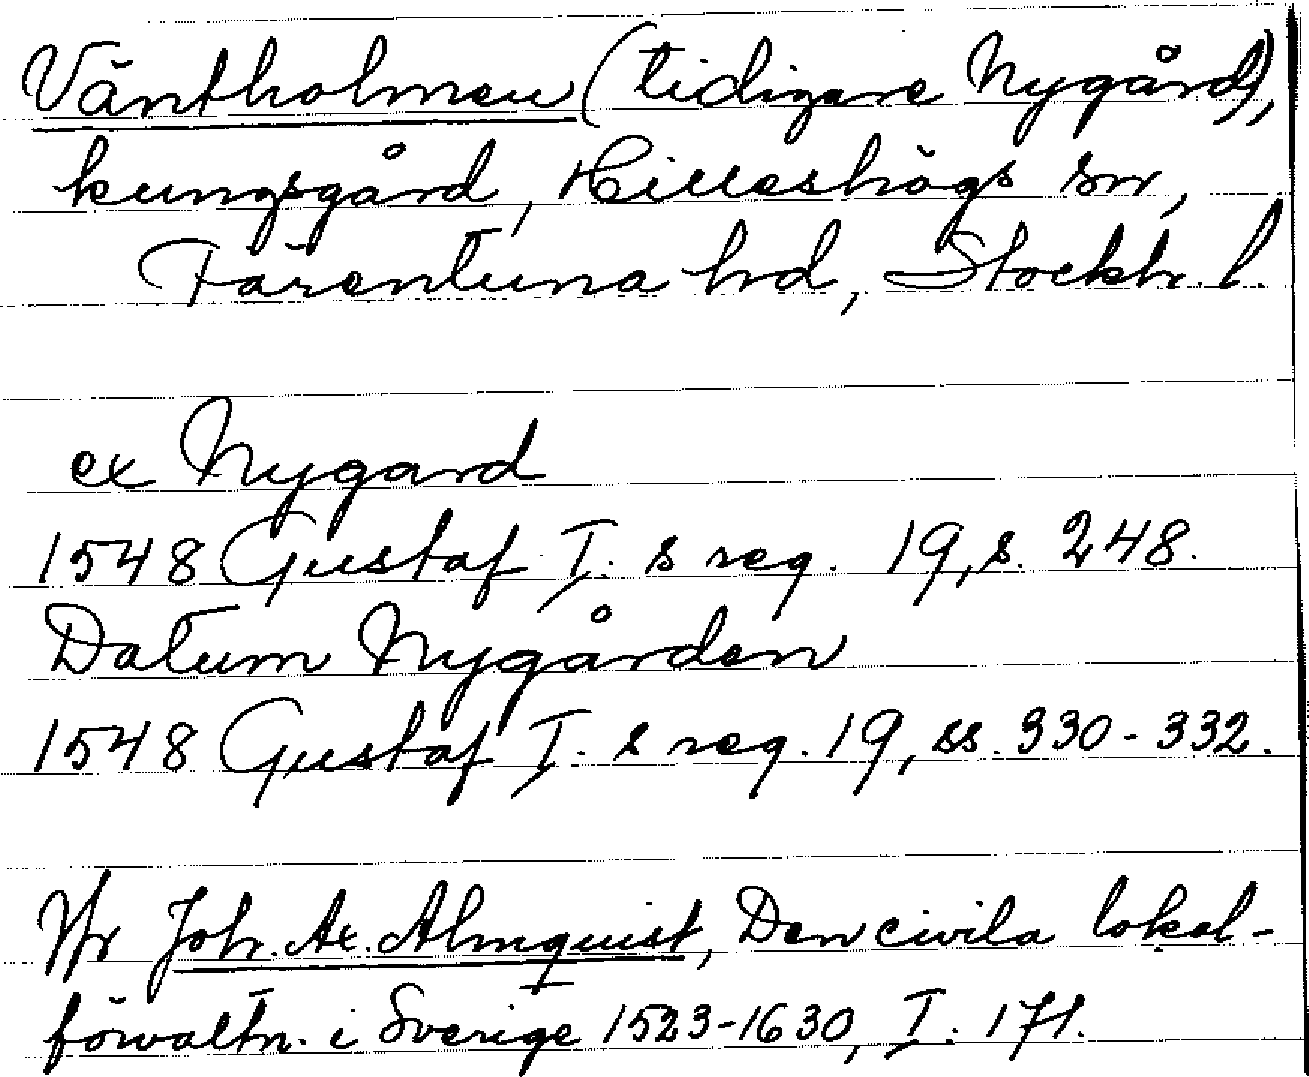 Väntholmen (tidigare Nygård),
kungsgård, Hilleshögs sn,
Färentuna hd, Stockh. l.
ex Nygard
1548 Gustaf I: s reg. 19, s. 248.
Datum Nygården
1548 Gustaf I. s reg. 19, ss. 330-332.
Jfr Joh. Ax. Almquist, Den civila lokal-
förvaltn. i Sverige 1523-1630, I: 171.